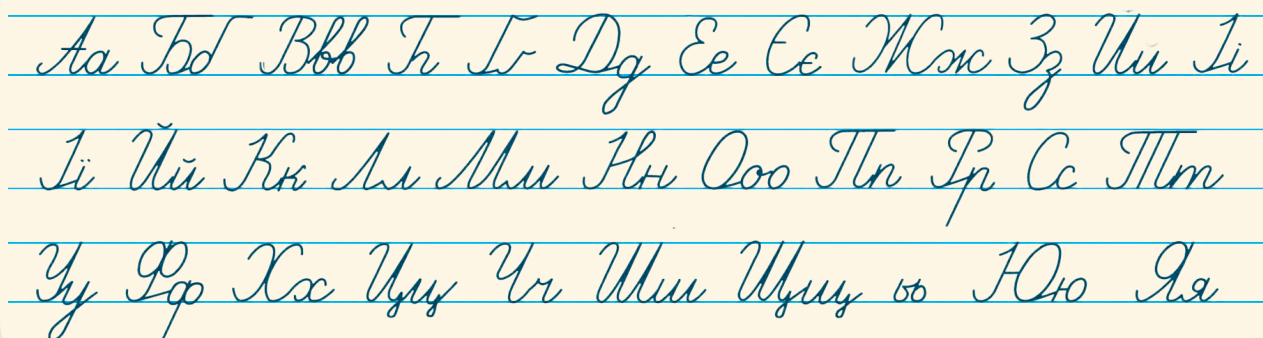 Аа Бб Ввв Гг Ґґ Дд Ее Єє Жж Зз Ии Іі
Її Йй Кк Лл Мм Нн Ооо Пп Рр Сс Тт
Уу Фф Хх Цц Чч Шш Щщ ьь Юю Яя